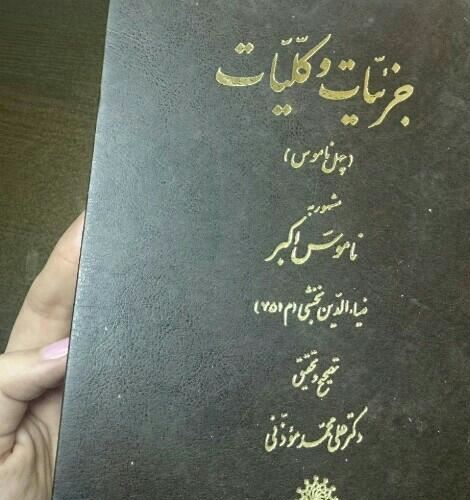 جزئیّات و کلّیّات
(چهل ناموس)
مشهور به
ناموس اکبر
ضیاءالدّین نخشبی (م ۷۵۱)
تصحیح و تحقیق
دکتر علی محمّد مؤذّنی